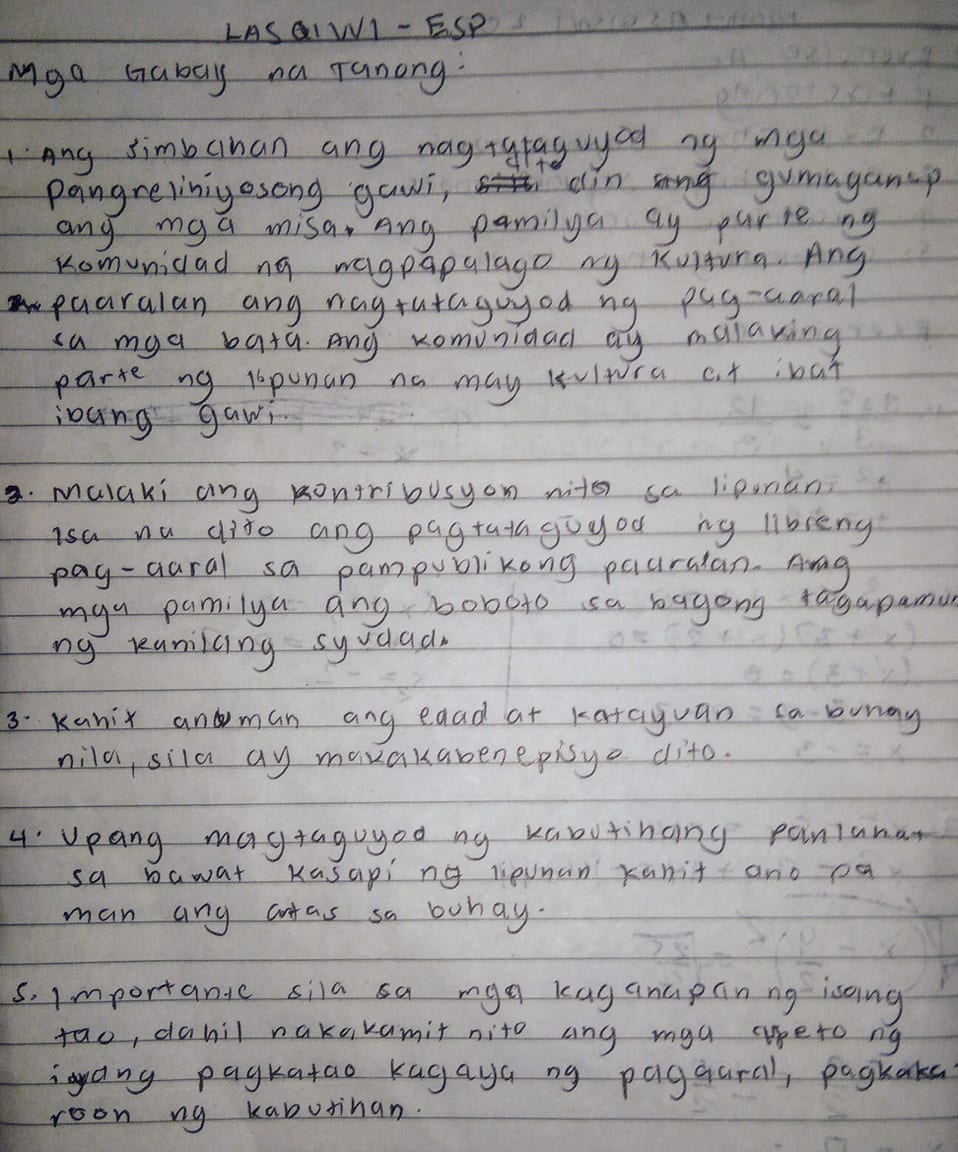 LAS Q1W1 - ESP
Mga Gabay na Tanong:
1. Ang simbahan ang nagtataguyod ng mga
pangreliniyosong gawi, dito din gumaganap
ang mga misa. Ang pamilya ay parte ng
komunidad na nagpapalago ng kultura. Ang
paaralan ang nagtutaguyod ng pag-aaral
sa mga bata. Ang komunidad ay malaking
parte ng lipunan na may kultura at ibat
ibang gawi.
2. Malaki ang kontribusyon nito sa lipunan.
Isa na dito ang pagtataguyod ng libreng
pag-aaral sa pampublikong paaralan. Ang
mga pamilya ang boboto sa bagong tagapamun
ng kanilang syudad.
3. Kahit anuman ang edad at katayuan sa buhay
nila, sila ay makakabenepisyo dito.
4. Upang magtaguyod ng kabutihang panlahat
sa bawat kasapi ng lipunan kahit ano pa
man ang antas sa buhay.
5. Importante sila sa mga kaganapan ng isang
tao, dahil nakakamit nito ang mga ng
pagkatao kagaya ng pagaaral, pagkaka-
roon ng kabutihan.